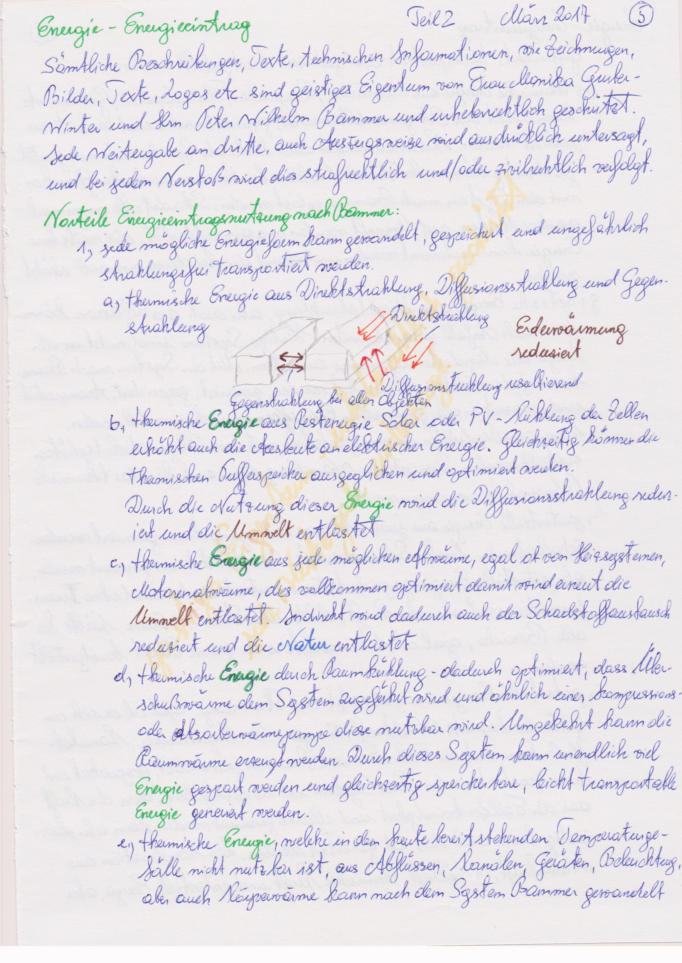 Energie - Energieeintrag Teil 2 März 2017 5
Sämtliche Beschreibungen, Texte, technischen Informationen, wie Zeichnungen,
Bilder, Texte, Logos etc. sind geistiges Eigentum von Frau Monika Gruber-
Winter und Hrn Peter Wilhelm Bammer und urheberrechtlich geschützt.
Jede Weitergabe an dritte, auch Auszugsweise wird ausdrücklich untersagt,
und bei jedem Verstoß wird dies strafrechtlich und/oder zivilrechtlich verfolgt.
Vorteile Energieeintragsnutzung nach Bammer:
1, jede mögliche Energieform kann gewandelt, gespeichert und ungefährlich
strahlungsfrei transportiert werden.
a, thermische Energie aus Direktstrahlung, Diffusionsstrahlung und Gegen-
strahlung
Direktstrahlung
Erderwärmung
reduziert
Diffusionsstrahlung resultierend
Gegenstrahlung bei allen Objekten
b, thermische Energie aus Restenergie Solar oder PV - Kühlung der Zellen
erhöht auch die Ausbeute an elektrischer Energie. Gleichzeitig können die
thermischen Pufferspeicher ausgeglichen und optimiert werden.
Durch die Nutzung dieser Energie wird die Diffusionsstrahlung reduz-
iert und die Umwelt entlastet
c, thermische Energie aus jede möglichen Abwärme, egal ob von Heizsystemen,
Motorenabwärme, dies vollkommen optimiert damit wird erneut die
Umwelt entlastet. Indirekt wird dadurch auch der Schadstoffaustausch
reduziert und die Natur entlastet
d, thermische Energie durch Raumkühlung - dadurch optimiert, dass Über-
schußwärme dem System zugeführt wird und ähnlich einer Kompressions-
oder Absorberwärmepumpe diese nutzbar wird. Umgekehrt kann die
Raumwärme erzeugt werden. Durch dieses System kann unendlich viel
Energie gespart werden und gleichzeitig speicherbare, leicht transportable
Energie generiert werden.
e, thermische Energie, welche in dem heute bereitstehenden Temperaturge-
fälle nicht nutzbar ist, aus Abflüssen, Kanälen, Geräten, Beleuchtung,
aber auch Körperwärme kann nach dem System Bammer gewandelt